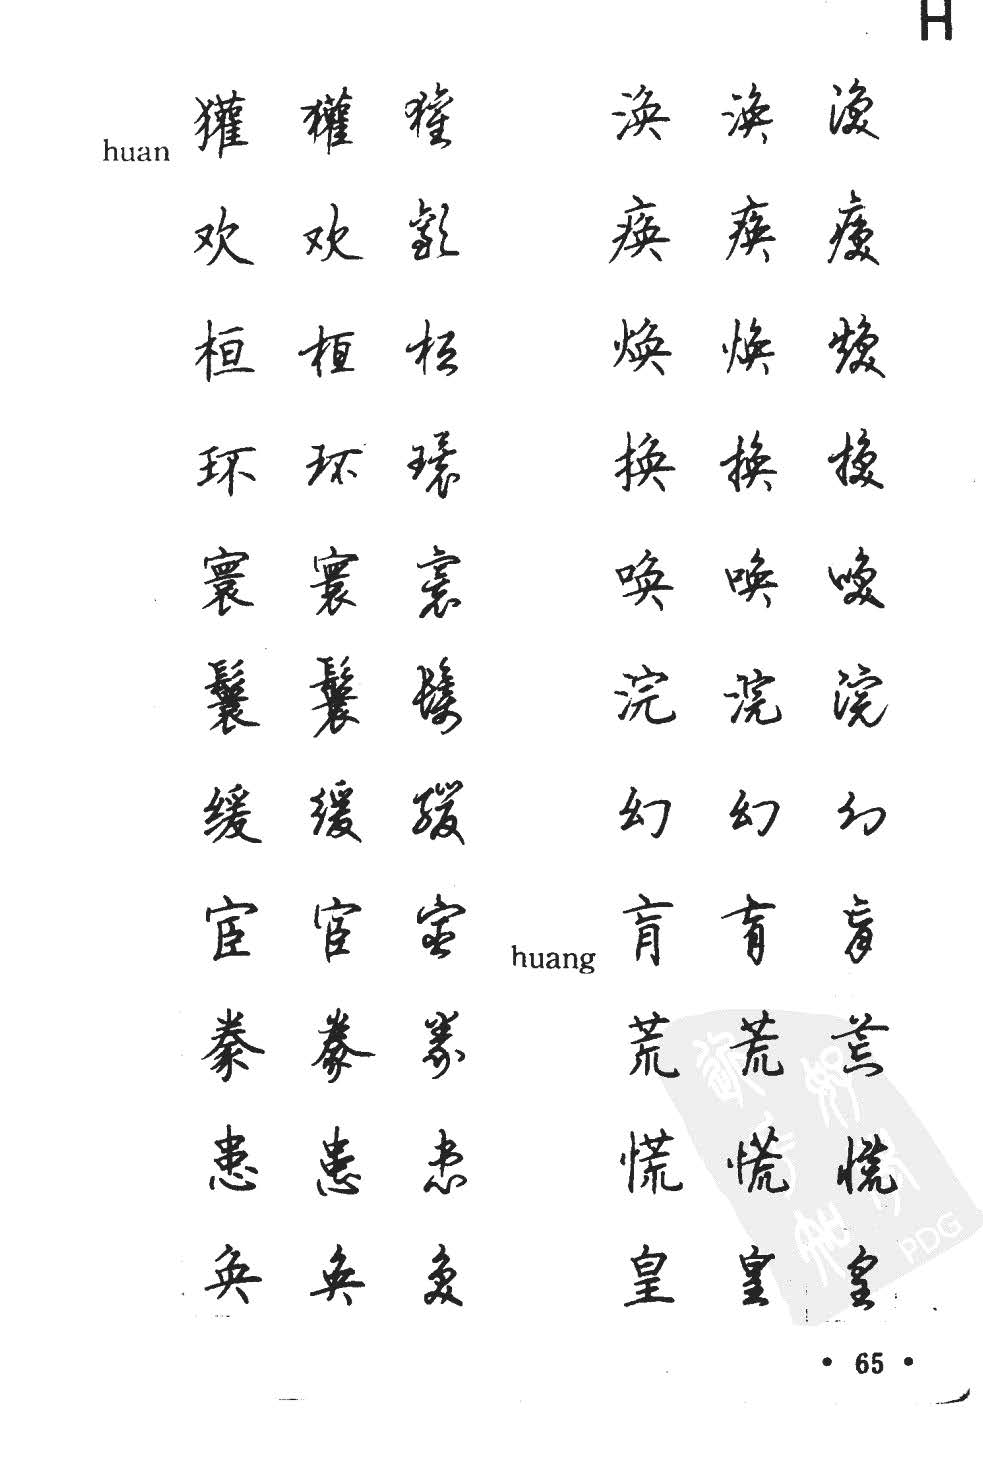 H
huan
獾 獾 獾 涣 涣 涣
欢 欢 歡 痪 痪 痪
桓 桓 桓 焕 焕 焕
环 环 環 换 换 换
寰 寰 寰 唤 唤 唤
鬟 鬟 鬟 浣 浣 浣
缓 缓 緩 幻 幻 幻
宦 宦 宦 肓 肓 肓
huang
豢 豢 豢 荒 荒 荒
患 患 患 慌 慌 慌
奂 奂 奂 皇 皇 皇
PDG
• 65 •